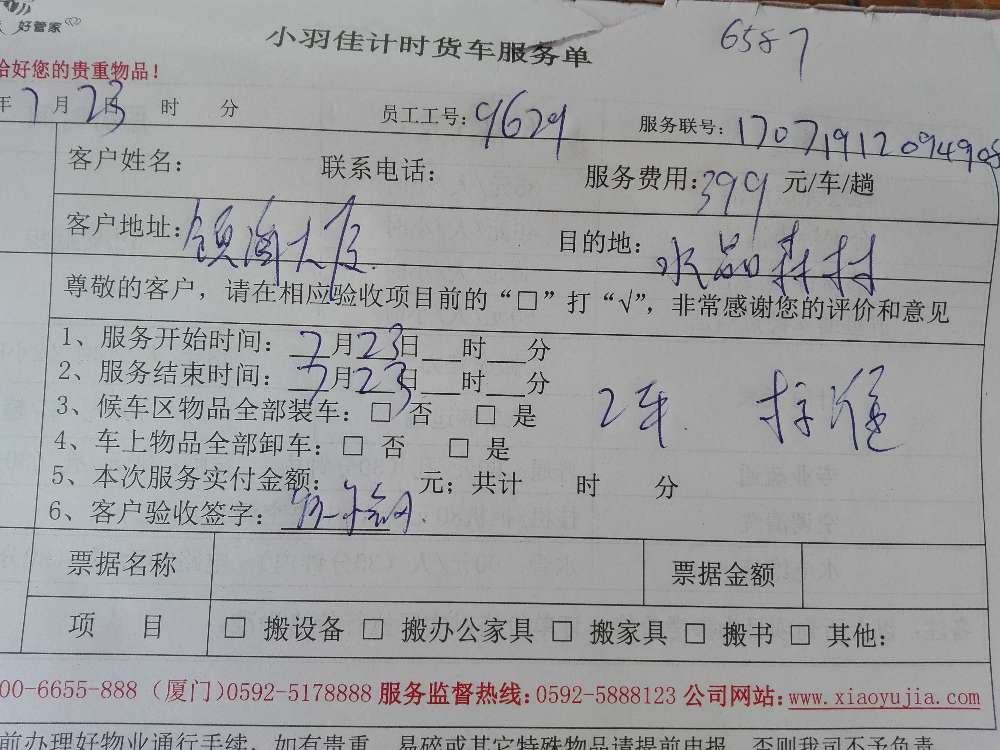 好管家
小羽佳计时货车服务单
6587
恰好您的贵重物品！
年7月23日 时 分 员工工号：9629 服务联号：17071912094908
客户姓名： 联系电话： 服务费用：399 元/车/趟
客户地址：领海大厦 目的地：水晶森林
尊敬的客户，请在相应验收项目前的“□”打“√”，非常感谢您的评价和意见
1、服务开始时间：7月23日___时___分
2、服务结束时间：7月23日___时___分
3、候车区物品全部装车：□ 否 □ 是
2车
4、车上物品全部卸车：□ 否 □ 是
5、本次服务实付金额： 元；共计 时 分
6、客户验收签字：
票据名称 票据金额
项 目 □ 搬设备 □ 搬办公家具 □ 搬家具 □ 搬书 □ 其他：
00-6655-888（厦门）0592-5178888 服务监督热线：0592-5888123 公司网站：www.xiaoyujia.com
前办理好物业通行手续，如有贵重、易碎或其它特殊物品请提前申报，否则我司不予负责